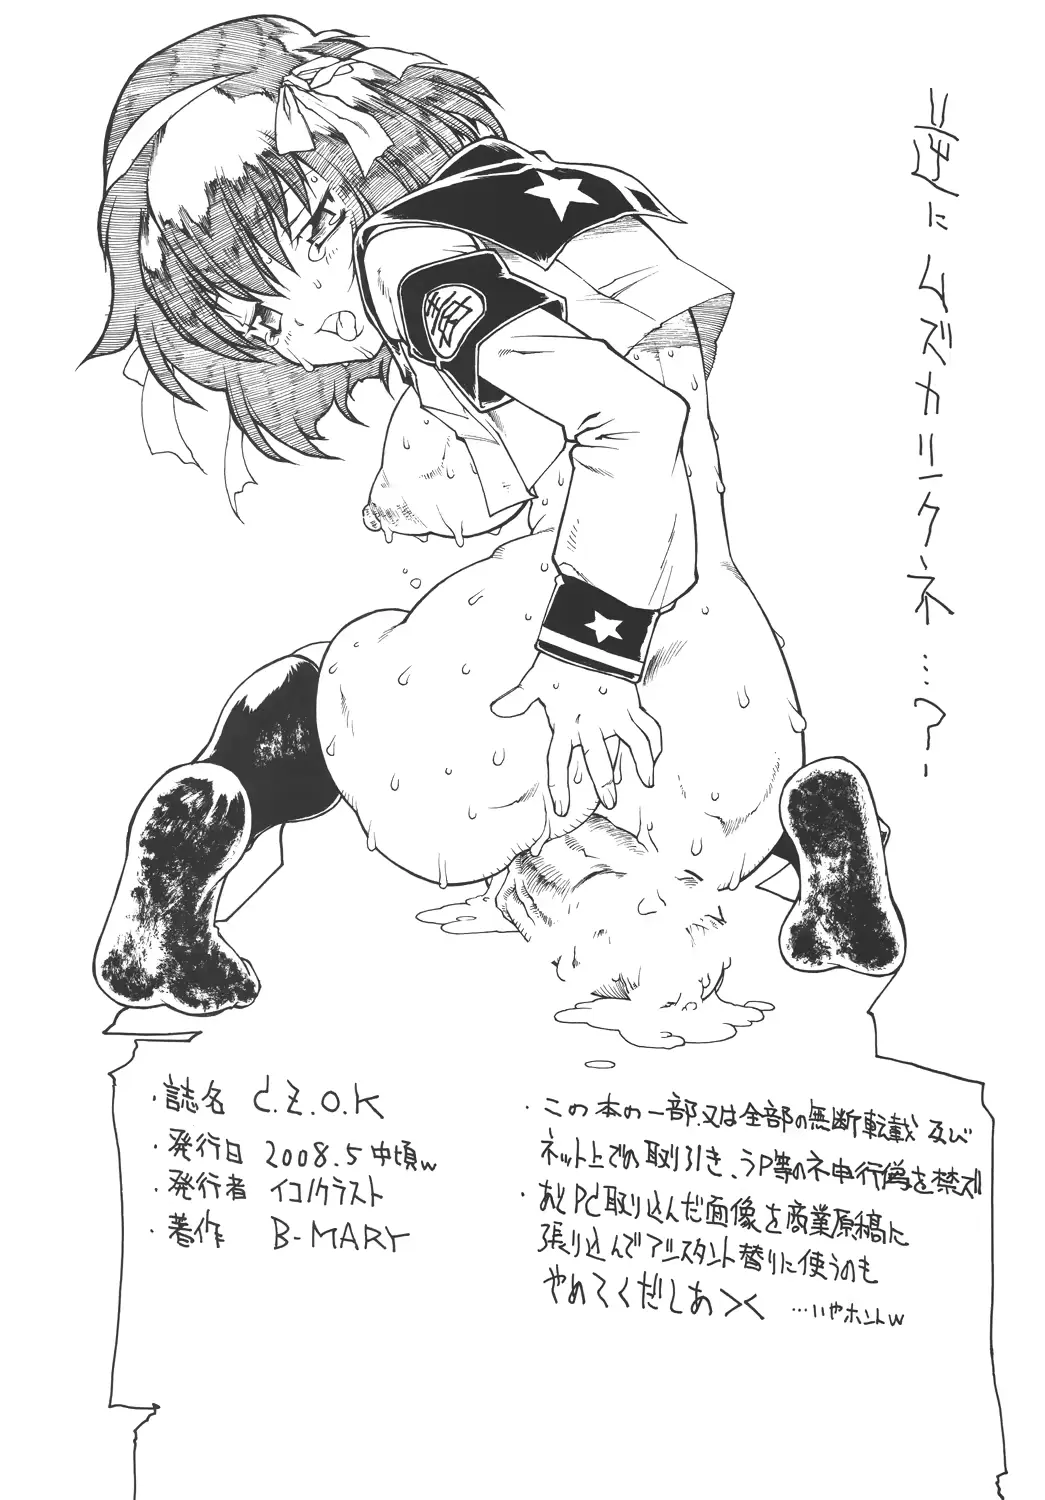 逆にムズカリンクネ…？
・誌名 C.Z.O.K
・発行日 2008.5中頃w
・発行者 イコノクラスト
・著作 B-MARY
・この本の一部.又は全部の無断転載 及び
ネット上での取り引き、うP等のネ申行為を禁ズ
・あとPCに取り込んだ面像を商業原稿に
張り込んでアシスタント替りに使うのも
やめてくだしあ><  …いやホントw